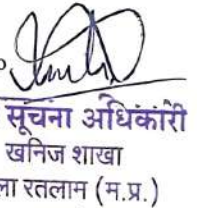 सूचना अधिकारी
खनिज शाखा
ला रतलाम (म.प्र.)